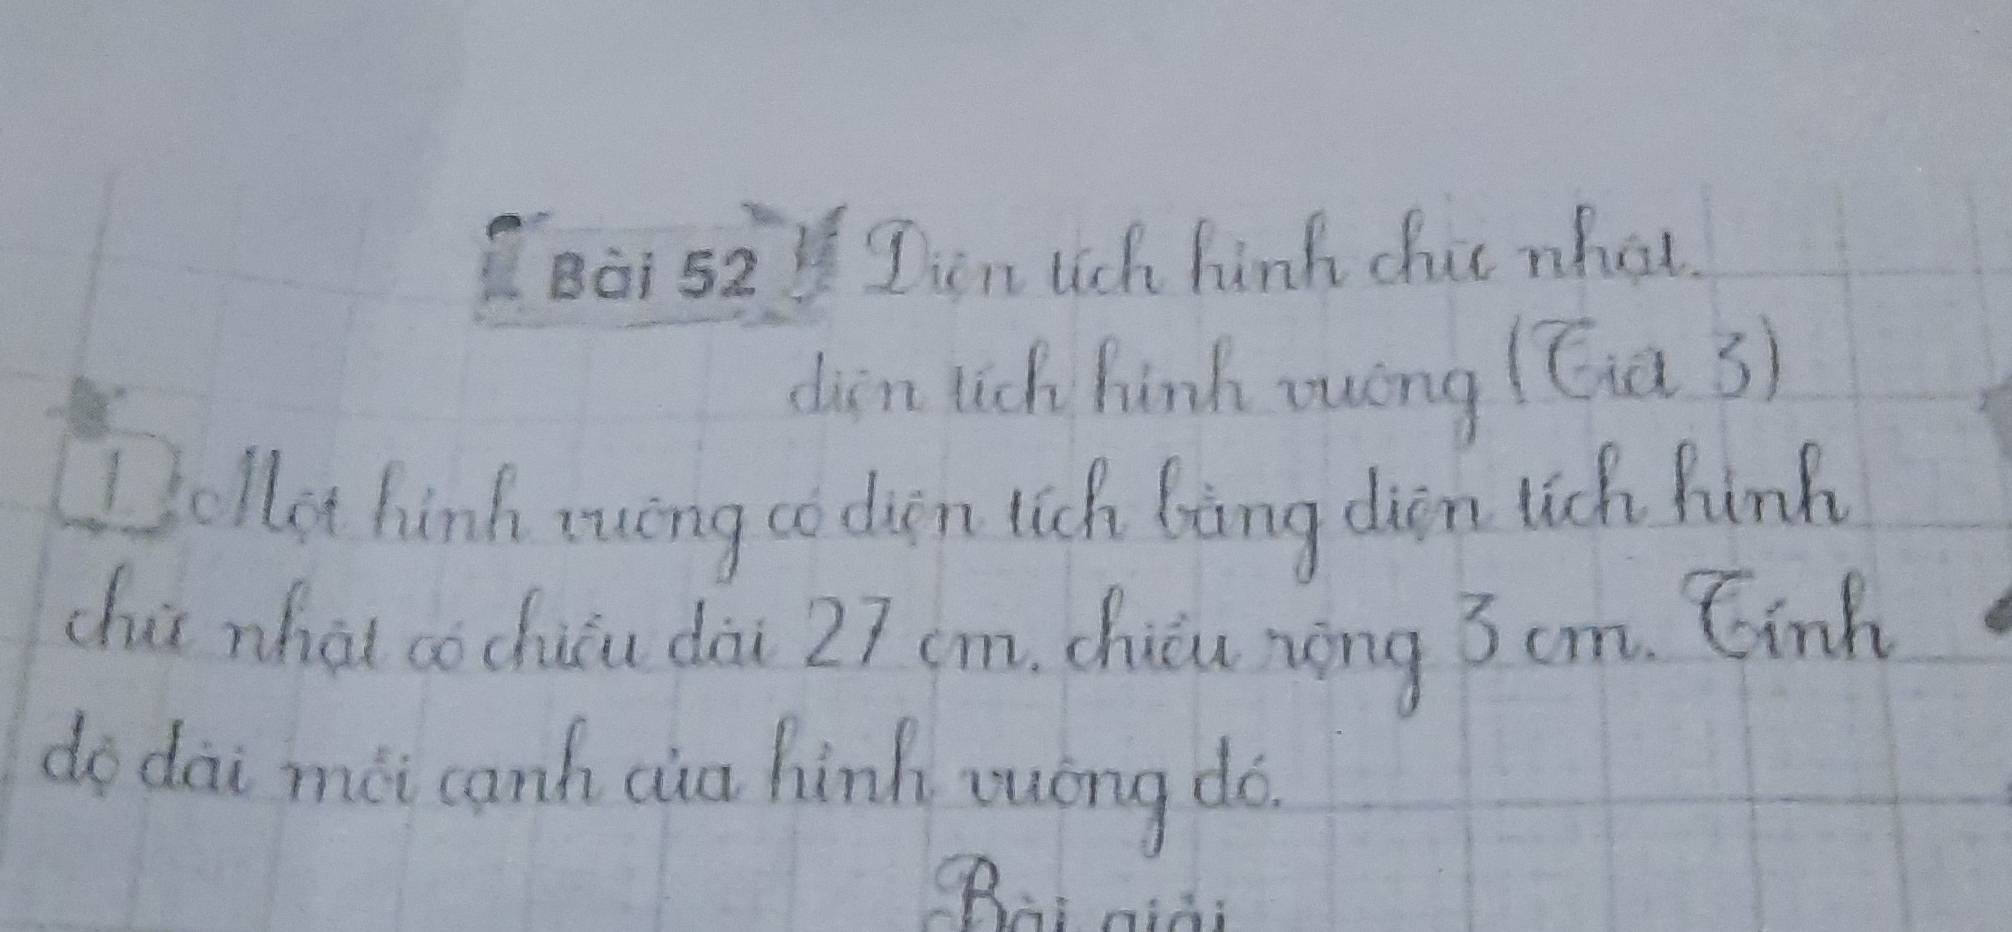 Bài 52 Diện tích hình chữ nhật.
diện tích hình vuông (Tiết 3)
1. Một hình vuông có diện tích bằng diện tích hình
chữ nhật có chiều dài 27 cm. chiều rộng 3 cm. Tính
độ dài mỗi cạnh của hình vuông đó.
Bài giải